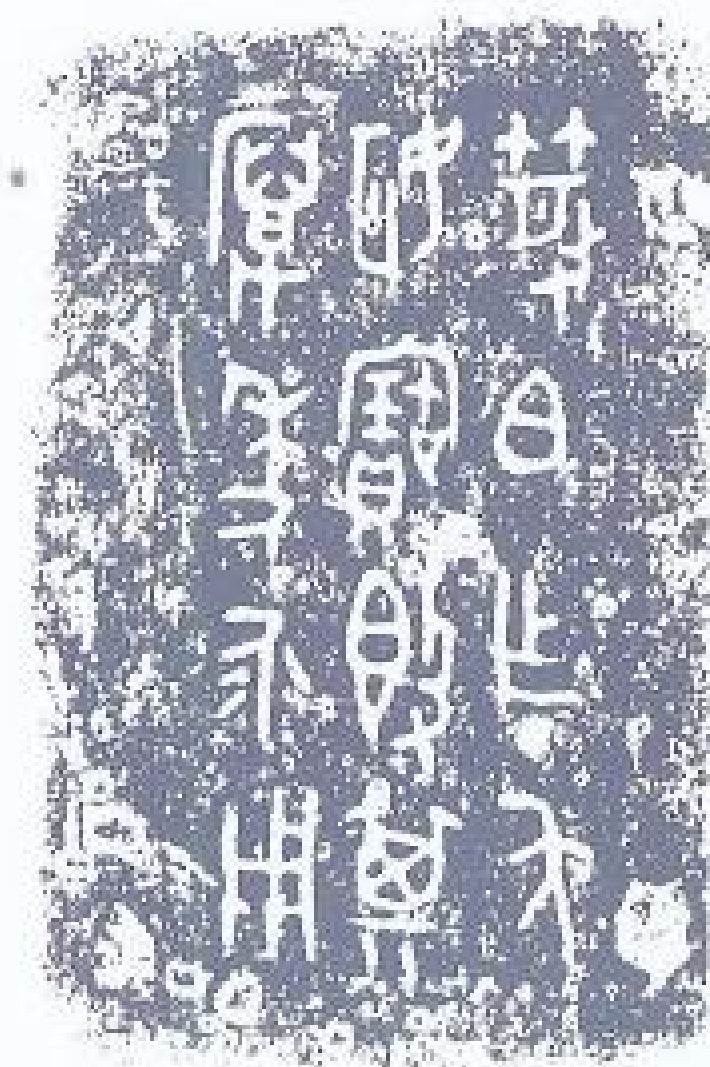 散白乍夨
姬寶𣪘其
厲年永用